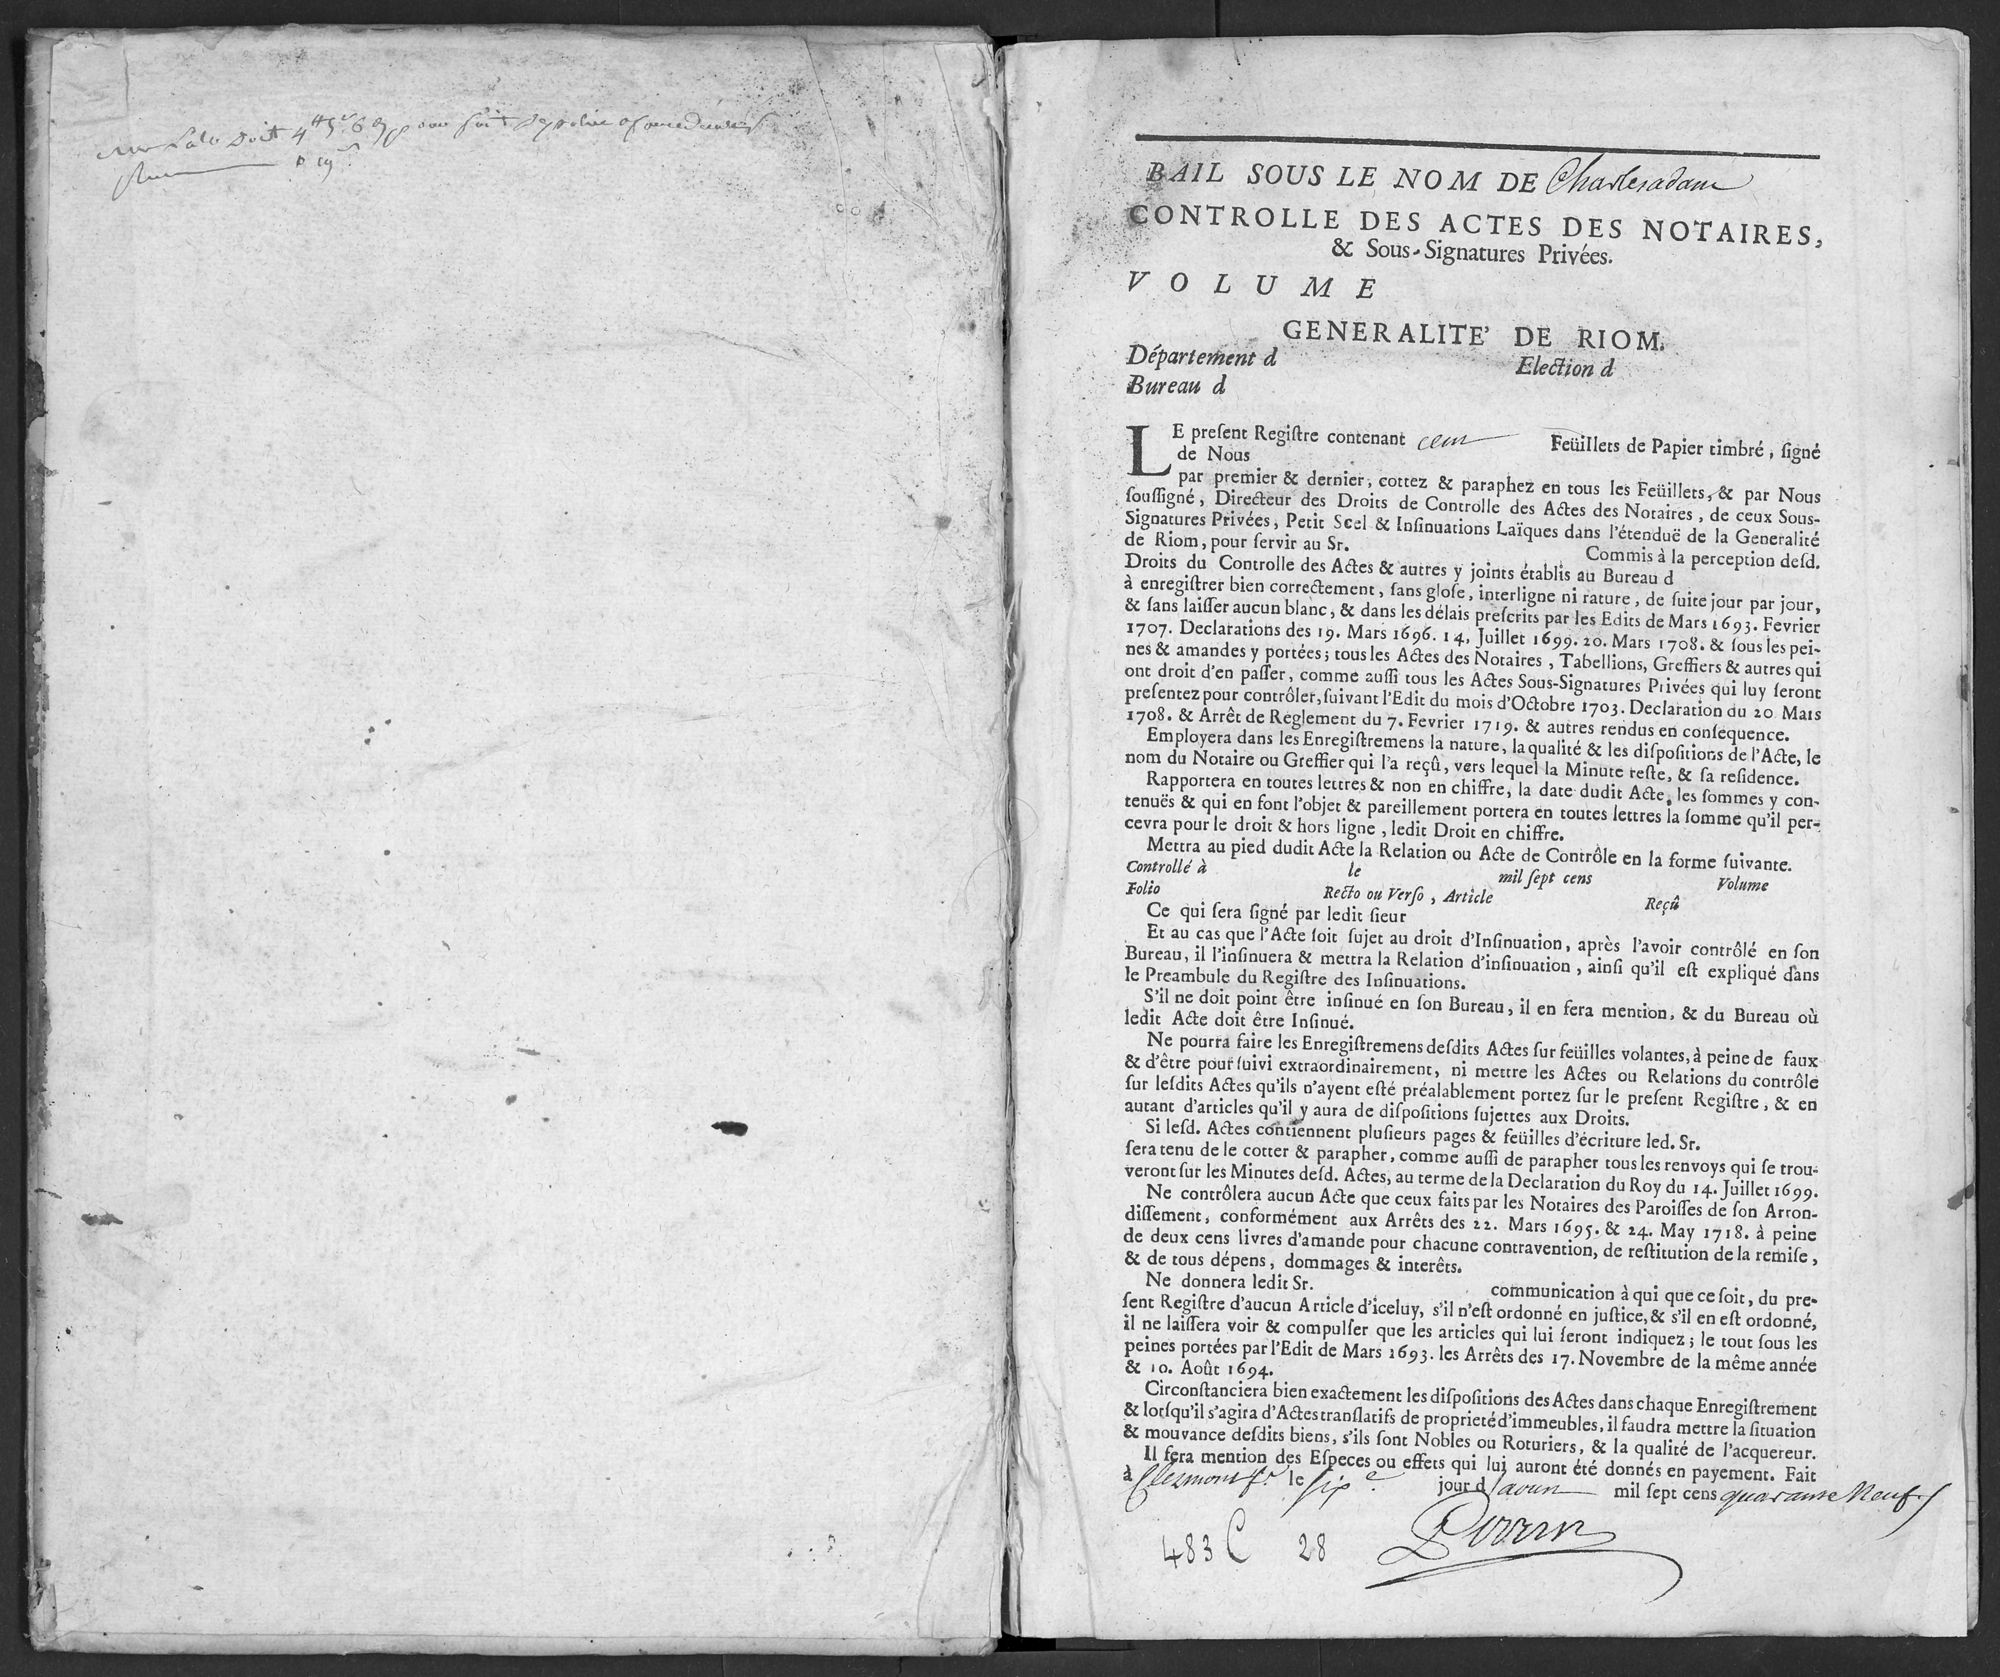 doit
BAIL SOUS LE NOM DE Charles adam
CONTROLLE DES ACTES DES NOTAIRES,
& Sous-Signatures Privées.
VOLUME
GENERALITE' DE RIOM.
Département d Election d
Bureau d
LE preſent Regiſtre contenant cent Feüillets de Papier timbré, ſigné
de Nous
par premier & dernier, cottez & paraphez en tous les Feüillets, & par Nous
ſouſſigné, Directeur des Droits de Controlle des Actes des Notaires, de ceux Sous-
Signatures Privées, Petit Scel & Inſinuations Laïques dans l'étenduë de la Generalité
de Riom, pour ſervir au Sr. Commis à la perception deſd.
Droits du Controlle des Actes & autres y joints établis au Bureau d
à enregiſtrer bien correctement, ſans gloſe, interligne ni rature, de ſuite jour par jour,
& ſans laiſſer aucun blanc, & dans les délais preſcrits par les Edits de Mars 1693. Fevrier
1707. Declarations des 19. Mars 1696. 14. Juillet 1699. 20. Mars 1708. & ſous les pei-
nes & amandes y portées; tous les Actes des Notaires, Tabellions, Greffiers & autres qui
ont droit d'en paſſer, comme auſſi tous les Actes Sous-Signatures Privées qui luy ſeront
preſentez pour contrôler, ſuivant l'Edit du mois d'Octobre 1703. Declaration du 20 Mars
1708. & Arrêt de Reglement du 7. Fevrier 1719. & autres rendus en conſequence.
Employera dans les Enregiſtremens la nature, la qualité & les diſpoſitions de l'Acte, le
nom du Notaire ou Greffier qui l'a reçû, vers lequel la Minute reſte, & ſa reſidence.
Rapportera en toutes lettres & non en chiffre, la date dudit Acte, les ſommes y con-
tenuës & qui en font l'objet & pareillement portera en toutes lettres la ſomme qu'il per-
cevra pour le droit & hors ligne, ledit Droit en chiffre.
Mettra au pied dudit Acte la Relation ou Acte de Contrôle en la forme ſuivante.
Controllé à le mil ſept cens Volume
Folio Recto ou Verſo, Article Reçû
Ce qui ſera ſigné par ledit ſieur
Et au cas que l'Acte ſoit ſujet au droit d'Inſinuation, après l'avoir contrôlé en ſon
Bureau, il l'inſinuera & mettra la Relation d'inſinuation, ainſi qu'il eſt expliqué dans
le Preambule du Regiſtre des Inſinuations.
S'il ne doit point être inſinué en ſon Bureau, il en fera mention, & du Bureau où
ledit Acte doit être Inſinué.
Ne pourra faire les Enregiſtremens deſdits Actes ſur feüilles volantes, à peine de faux
& d'être pourſuivi extraordinairement, ni mettre les Actes ou Relations du contrôle
ſur leſdits Actes qu'ils n'ayent eſté préalablement portez ſur le preſent Regiſtre, & en
autant d'articles qu'il y aura de diſpoſitions ſujettes aux Droits.
Si leſd. Actes contiennent pluſieurs pages & feüilles d'écriture led. Sr.
ſera tenu de le cotter & parapher, comme auſſi de parapher tous les renvoys qui ſe trou-
veront ſur les Minutes deſd. Actes, au terme de la Declaration du Roy du 14. Juillet 1699.
Ne contrôlera aucun Acte que ceux faits par les Notaires des Paroiſſes de ſon Arron-
diſſement, conformément aux Arrêts des 22. Mars 1695. & 24. May 1718. à peine
de deux cens livres d'amande pour chacune contravention, de reſtitution de la remiſe,
& de tous dépens, dommages & interêts.
Ne donnera ledit Sr. communication à qui que ce ſoit, du pre-
ſent Regiſtre d'aucun Article d'iceluy, s'il n'eſt ordonné en juſtice, & s'il en eſt ordonné,
il ne laiſſera voir & compulſer que les articles qui lui ſeront indiquez; le tout ſous les
peines portées par l'Edit de Mars 1693. les Arrêts des 17. Novembre de la même année
& 10. Août 1694.
Circonſtanciera bien exactement les diſpoſitions des Actes dans chaque Enregiſtrement
& lorſqu'il s'agira d'Actes tranſlatifs de proprieté d'immeubles, il faudra mettre la ſituation
& mouvance deſdits biens, s'ils ſont Nobles ou Roturiers, & la qualité de l'acquereur.
Il fera mention des Eſpeces ou effets qui lui auront été donnés en payement. Fait
à Clermont fr. le six e jour d'aoust mil ſept cens quarante Neuf
483 C 28 Perrin